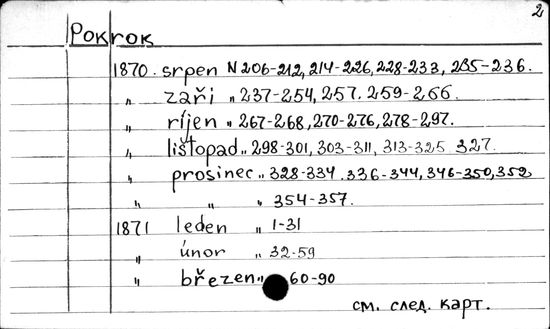 2
Pokrok
1870. srpen N 206-212, 214-226, 228-233, 235-236.
„ zaři „ 237-254, 257. 259-266.
„ ríjen „ 267-268, 270-276, 278-297.
„ lištopad „ 298-301, 303-311, 313-325 327.
„ prosinec „ 328-334. 336-344, 346-350, 352
„ „ „ 354-357.
1871 leden „ 1-31
„ únor „ 32-59
„ březen „ 60-90
см. след. карт.